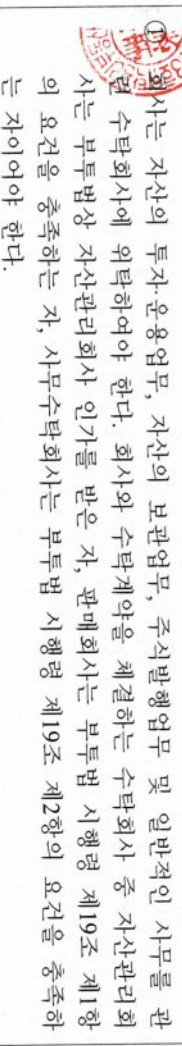 ① 회사는 자산의 투자·운용업무, 자산의 보관업무, 주식발행업무 및 일반적인 사무를 관
련 수탁회사에 위탁하여야 한다. 회사와 수탁계약을 체결하는 수탁회사 중 자산관리회
사는 부투법상 자산관리회사 인가를 받은 자, 판매회사는 부투법 시행령 제19조 제1항
의 요건을 충족하는 자, 사무수탁회사는 부투법 시행령 제19조 제2항의 요건을 충족하
는 자이어야 한다.